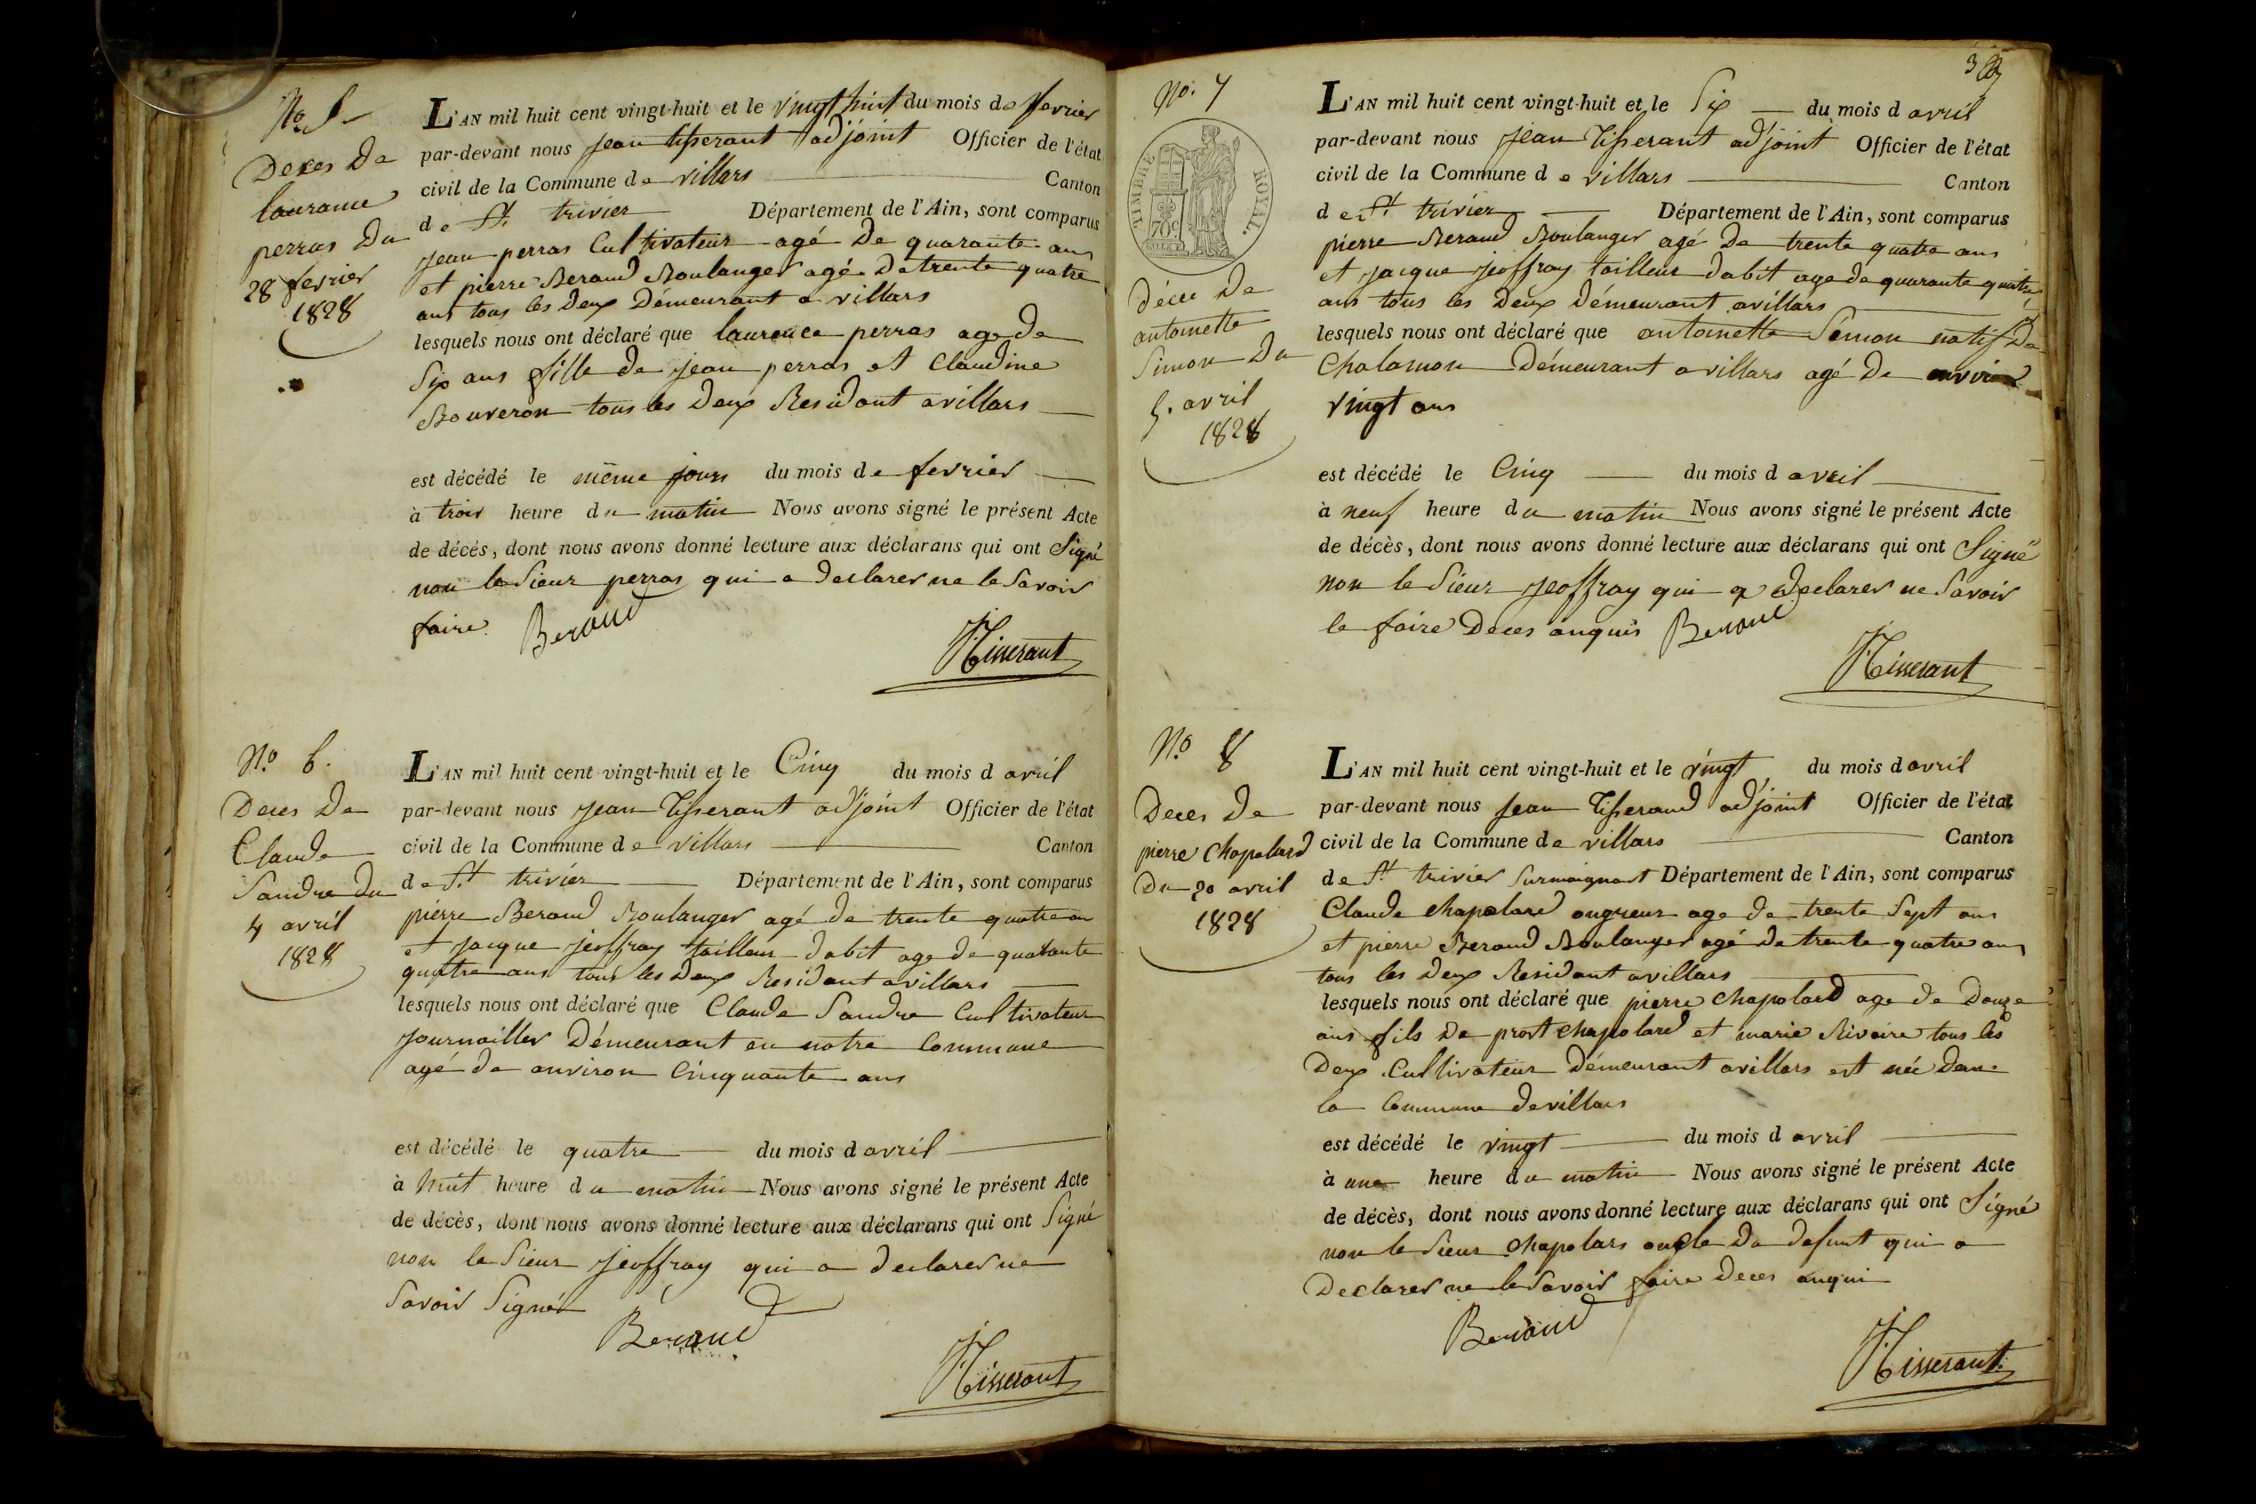 No. 5
Deces De
laurance
perras Du
28 fevrier
1828
L'AN mil huit cent vingt-huit et le vingt huit du mois de fevrier
par-devant nous jean tisserant adjoint Officier de l'état
civil de la Commune de villars Canton
de St. trivier Département de l'Ain, sont comparus
jean perras Cultivateur agé De quarante ans
et pierre Beraud Boulanger agé De trente quatre
ans tous les Deux Démeurant a villars
lesquels nous ont déclaré que laurence perras age de
Six ans fille de jean perras et Claudine
Bouveron tous les Deux Residant avillars
est décédé le même jours du mois de fevrier
à trois heure du matin Nous avons signé le présent Acte
de décès, dont nous avons donné lecture aux déclarans qui ont Signé
non le Sieur perras qui a declarer ne le Savoir
faire. Beraud
JTisserant
No. 6.
Deces De
Claude
Sandre du
4 avril
1828
L'AN mil huit cent vingt-huit et le Cinq du mois d avril
par-devant nous jean Tisserant adjoint Officier de l'état
civil de la Commune de villars Canton
de St trivier Département de l'Ain, sont comparus
pierre Beraud Boulanger agé de trente quatre an
et jacque jeoffray tailleur dabit age de quarante
quatre ans tous les Deux Residant avillars
lesquels nous ont déclaré que Claude Sandre Cultivateur
journailler Démeurant en notre Commune
agé de anviron Cinquante ans
est décédé le quatre du mois d avril
à huit heure du matin Nous avons signé le présent Acte
de décès, dont nous avons donné lecture aux déclarans qui ont Signé
non le Sieur jeoffray qui a declarer ne
Savoir Signé
Beraud
JTisserant
No. 7
TIMBRE ROYAL.
70c
Déces De
antoinette
Simon Du
5. avril
1828
L'AN mil huit cent vingt-huit et le Six du mois d avril
par-devant nous jean Tisserant adjoint Officier de l'état
civil de la Commune de villars Canton
de St trivier Département de l'Ain, sont comparus
pierre Beraud Boulanger agé De trente quatre ans
et jacque jeoffray tailleur dabit age de quarante quatre
ans tous les Deux Démeurant avillars
lesquels nous ont déclaré que antoinette Simon natif De
Chalamon Démeurant avillars agé De anviron
vingt ans
est décédé le Cinq du mois d avril
à neuf heure du matin Nous avons signé le présent Acte
de décès, dont nous avons donné lecture aux déclarans qui ont Signé
non le Sieur jeoffray qui a declarer ne Savoir
le faire Deces anquis Beraud
JTisserant
No. 8
Deces De
pierre Chapolard
Du 20 avril
1828
L'AN mil huit cent vingt-huit et le vingt du mois d avril
par-devant nous jean Tisserand adjoint Officier de l'état
civil de la Commune de villars Canton
de St trivier Surmoignant Département de l'Ain, sont comparus
Claude Chapolard age de trente Sept ans
et pierre Beraud Boulanger agé de trente quatre ans
tous les Deux Residant avillars
lesquels nous ont déclaré que pierre Chapolard age de Douze
ans fils De Chapolard et marie Rivoire tous les
Deux Cultivateur Démeurant avillars est née Dans
la Commune de villars
est décédé le vingt du mois d avril
à une heure du matin Nous avons signé le présent Acte
de décès, dont nous avons donné lecture aux déclarans qui ont Signé
non le Sieur Chapolars oncle Du defunt qui a
Declarer ne le Savoir faire Deces anqui
Beraud
JTisserant